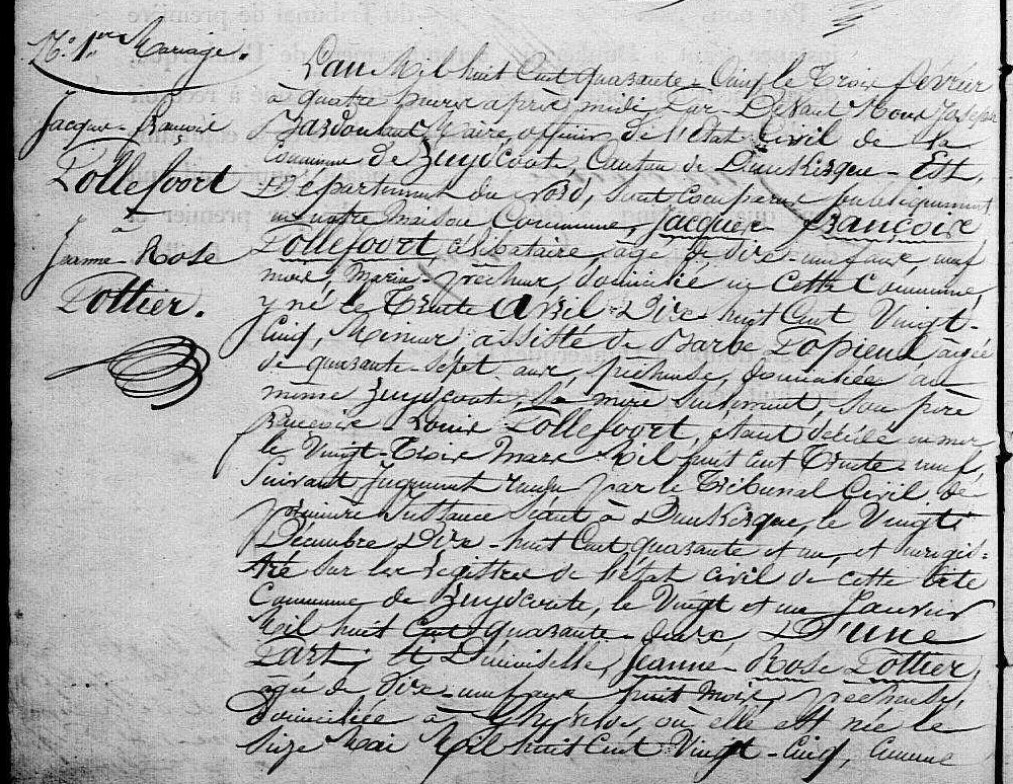 N.o 1.er Mariage.
Jacques-François
Tollefoort
à
Jeanne-Rose
Pottier.
L'an Mil huit Cent quarante-Cinq le Trois février
à quatre heures après midi, Par-Devant Nous Joseph
maire, officier de l'état Civil de la
Commune de Zuydcoote, Canton de Dunkerque-Est,
Département du nord, sont comparus publiquement
en notre maison Commune, Jacques-François
Tollefoort, célibataire, âgé de dix-neuf ans neuf
mois, marin-pêcheur, domicilié en cette Commune,
y né le Trente Avril Dix-huit Cent Vingt-
Cinq, Mineur, assisté de Barbe âgée
de quarante-sept ans, pêcheuse, domiciliée au
même Zuydcoote, sa mère seulement, son père
François-Louis Tollefoort, étant décédé en mer
le Vingt-Trois Mars Mil huit cent Trente-neuf,
Suivant Jugement rendu par le Tribunal Civil de
première Instance séant à Dunkerque, le Vingt
Décembre Dix-huit Cent quarante et un, et enregis-
tré sur les registres de l'état civil de cette dite
Commune de Zuydcoote, le Vingt et un Janvier
Mil huit Cent quarante-deux D'une
Part; Et Demoiselle, Jeanne-Rose Pottier,
âgée de dix-neuf ans huit mois, pêcheuse,
domiciliée à Ghyvelde, où elle est née le
Seize Mai Mil huit Cent Vingt-Cinq, comme